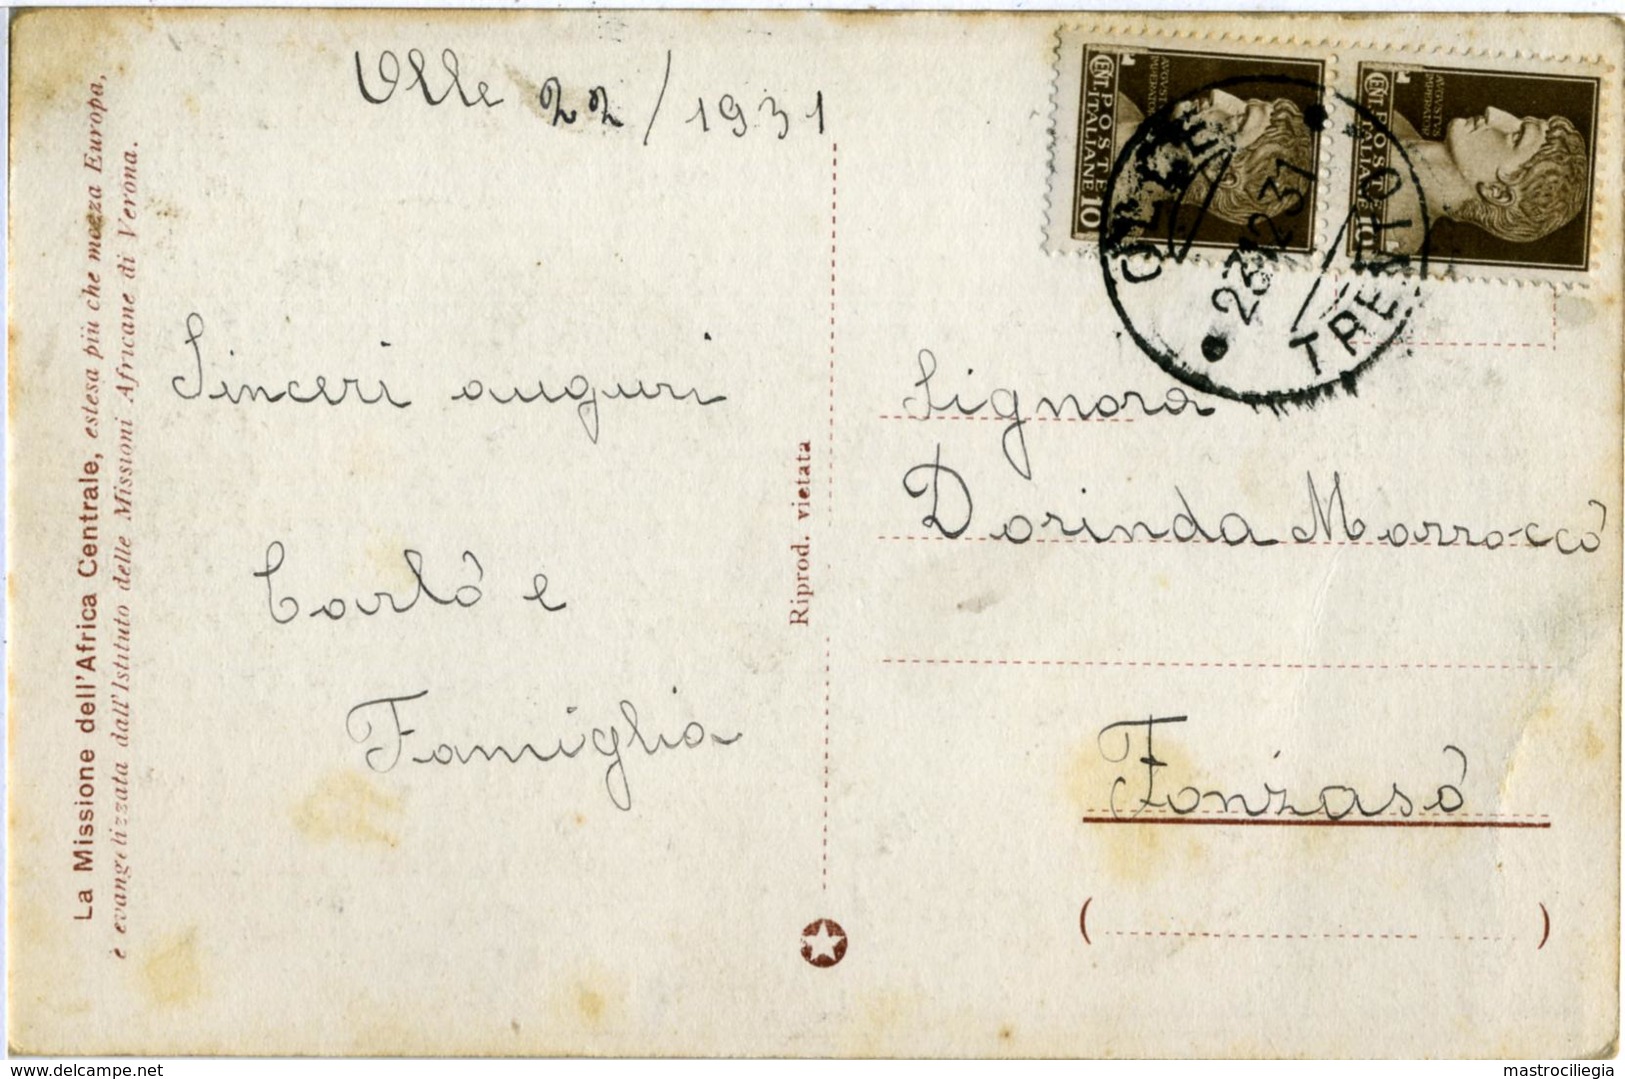 La Missione dell'Africa Centrale, estesa più che mezza Europa,
è evangelizzata dall'Istituto delle Missioni Africane di Verona.
Olle 22/1931
Sinceri auguri
Carlo e
Famiglia
Riprod. vietata
CENT. POSTE
ITALIANE 10
AVGVSTVS
CENT. POSTE
ITALIANE 10
OLLE
23 12 31
TRENTO
Signora
Dorinda Morrocco
Fonzaso
( )
mastrociliegia